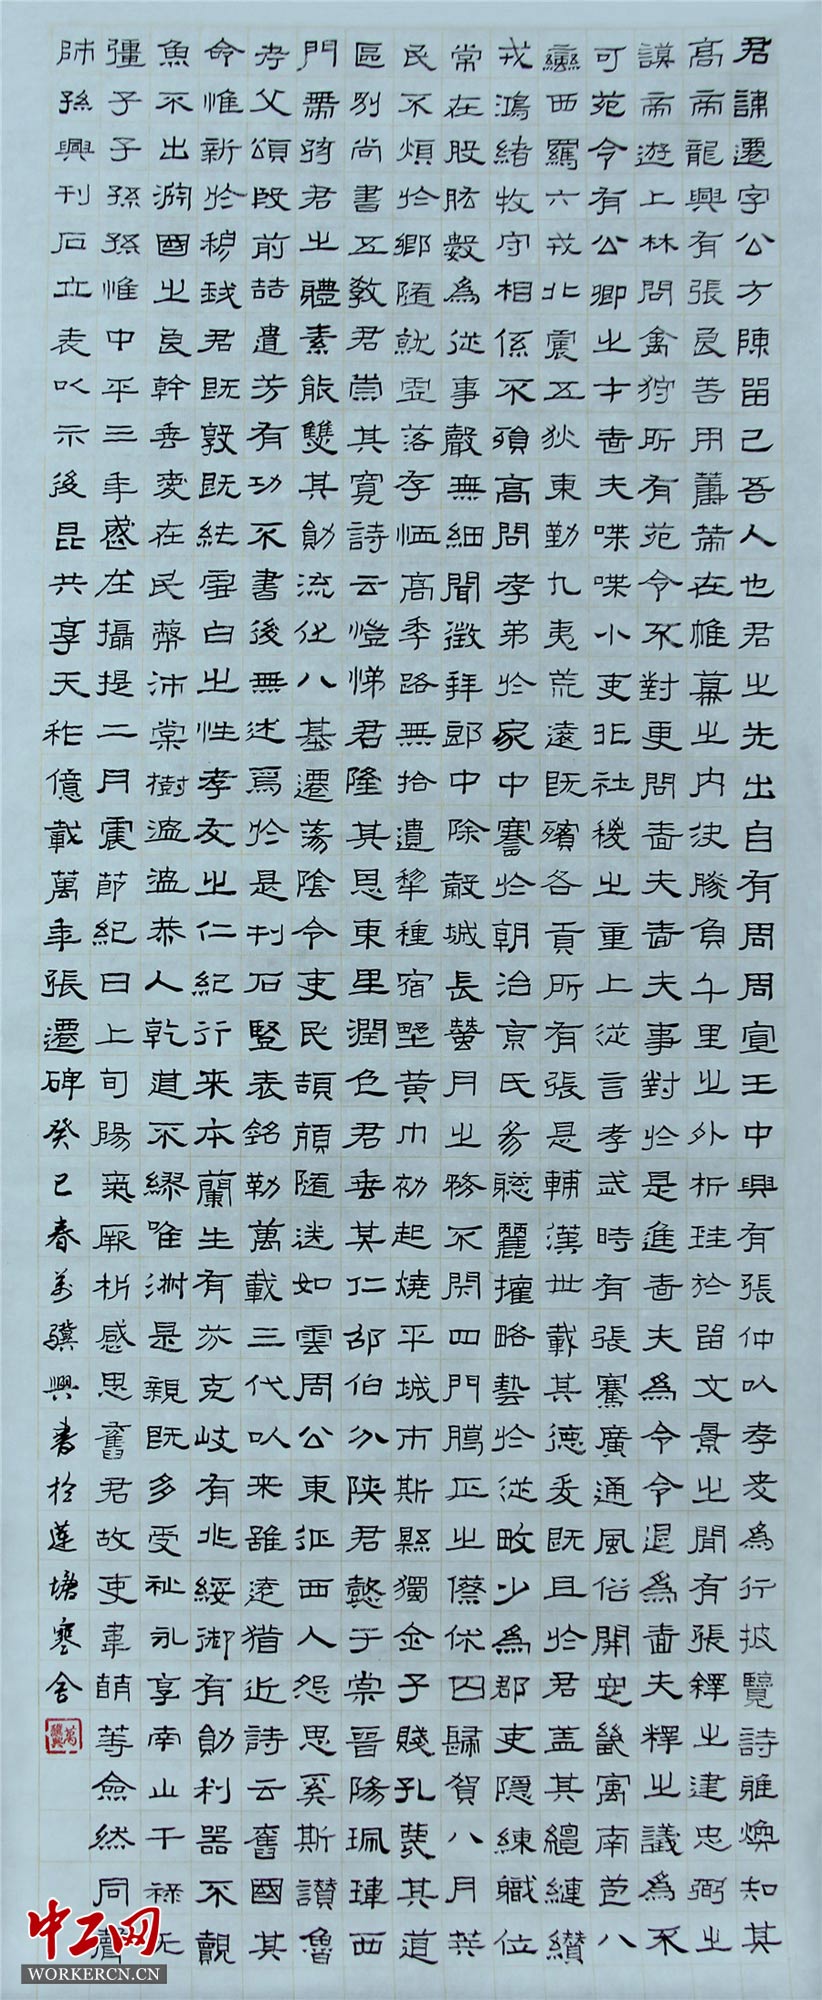 君諱遷字公方陳留己吾人也君之先出自有周周宣王中興有張仲以孝友為行披覽詩雅煥知其
高帝龍興有張良善用籌策在帷幕之內決勝負千里之外析珪於留文景之間有張釋之建忠弼之
謨帝遊上林問禽狩所有苑令不對更問嗇夫嗇夫事對於是進嗇夫為令令退為嗇夫釋之議為不
可苑令有公卿之才嗇夫喋喋小吏非社稷之重上從言孝武時有張騫廣通風俗開定畿寓南苞八
蠻西羈六戎北震五狄東勤九夷荒遠既殯各貢所有張是輔漢世載其德爰既且於君蓋其繵縺纘
戎鴻緒牧守相係不殞高問孝弟於家中謇於朝治京氏易聰麗權略藝於從畋少為郡吏隱練職位
常在股肱數為從事聲無細聞徵拜郎中除穀城長蠶月之務不閉四門臘正之僚休囚歸賀八月筭
民不煩於鄉隨就虛落存恤高年路無拾遺犁種宿野黃巾初起燒平城市斯縣獨全子賤孔蔑其道
區別尚書五教君崇其寬詩云愷悌君隆其恩東里潤色君垂其仁邵伯分陝君懿于棠晉陽珮瑋西
門帶弦君之體素能雙其勛流化八基遷蕩陰令吏民頡頏隨送如雲周公東征西人怨思奚斯讚魯
考父頌殷前喆遺芳有功不書後無述焉於是刊石豎表銘勒萬載三代以來雖遠猶近詩云舊國其
命惟新於穆我君既敦既純雪白之性孝友之仁紀行來本蘭生有芬克岐有兆綏御有勛利器不覿
魚不出淵國之良幹垂愛在民蔽沛棠樹溫溫恭人乾道不繆唯淑是親既多受祉永享南山干祿无
疆子子孫孫惟中平三年歲在攝提二月震節紀日上旬陽氣厥析感思舊君故吏韋萌等僉然同聲
師孫興刊石立表以示後昆共享天祚億載萬年張遷碑癸巳春萬驥興書於蓮塘寒舍
萬驥興
中工网
WORKERCN.CN